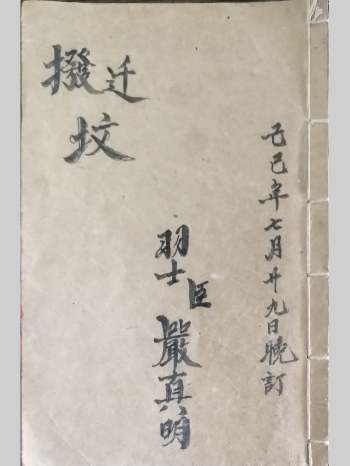 己巳年七月廿九日晚訂
撥迁
坟
羽士臣嚴真明